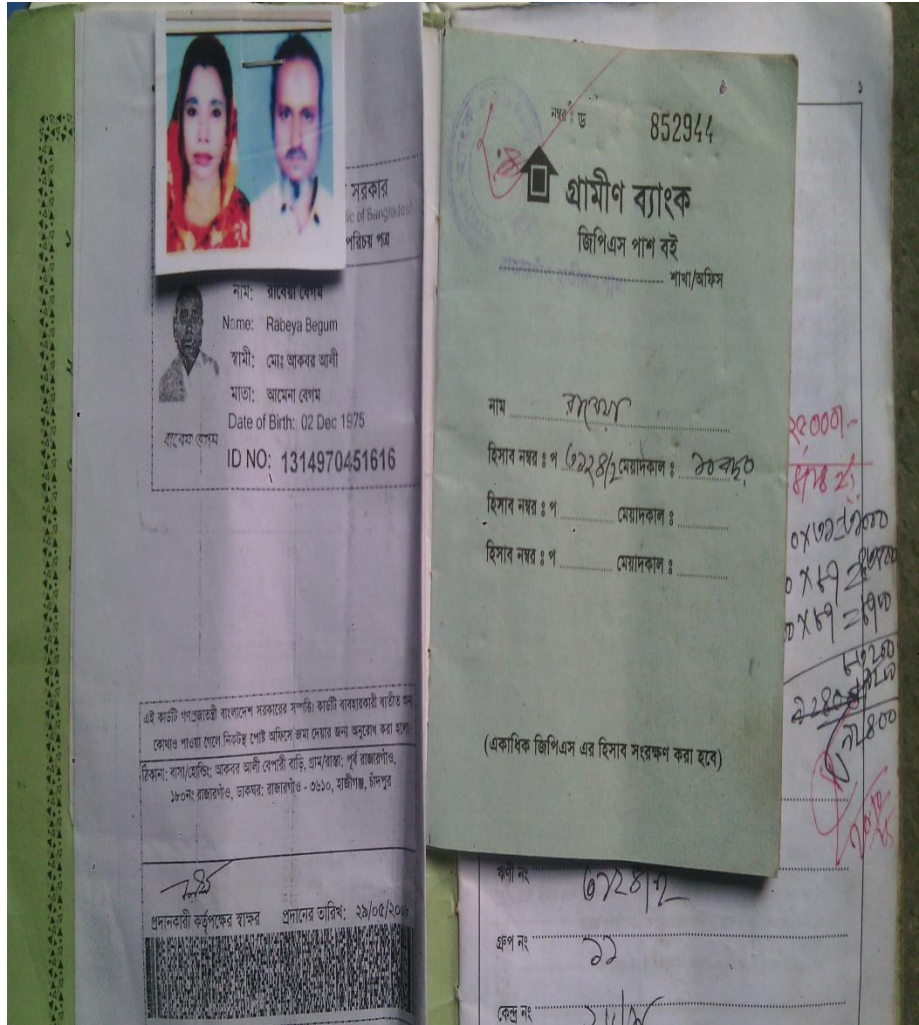 সরকার
ic of Bangladesh
পরিচয় পত্র
নাম: রাবেয়া বেগম
Name: Rabeya Begum
স্বামী: মোঃ আকবর আলী
মাতা: আমেনা বেগম
Date of Birth: 02 Dec 1975
রাবেয়া বেগম
ID NO: 1314970451616
এই কার্ডটি গণপ্রজাতন্ত্রী বাংলাদেশ সরকারের সম্পত্তি। কার্ডটি ব্যবহারকারী ব্যতীত অন্য
কোথাও পাওয়া গেলে নিকটস্থ পোষ্ট অফিসে জমা দেয়ার জন্য অনুরোধ করা হলো।
ঠিকানা: বাসা/হোল্ডিং: আকবর আলী বেপারী বাড়ি, গ্রাম/রাস্তা: পূর্ব রাজারগাঁও,
১৮০নং রাজারগাঁও, ডাকঘর: রাজারগাঁও - ৩৬১০, হাজীগঞ্জ, চাঁদপুর
প্রদানকারী কর্তৃপক্ষের স্বাক্ষর প্রদানের তারিখ: ২৯/০৫/২০০৮
নম্বর : ড 852944
গ্রামীণ ব্যাংক
জিপিএস পাশ বই
শাখা/অফিস
নাম রাবেয়া
হিসাব নম্বর : প ৩১২৪/২ মেয়াদকাল : ১০ বছর
হিসাব নম্বর : প মেয়াদকাল :
হিসাব নম্বর : প মেয়াদকাল :
(একাধিক জিপিএস এর হিসাব সংরক্ষণ করা হবে)
১
ঋণী নং ৩১২৪/২
গ্রুপ নং ১১
কেন্দ্র নং